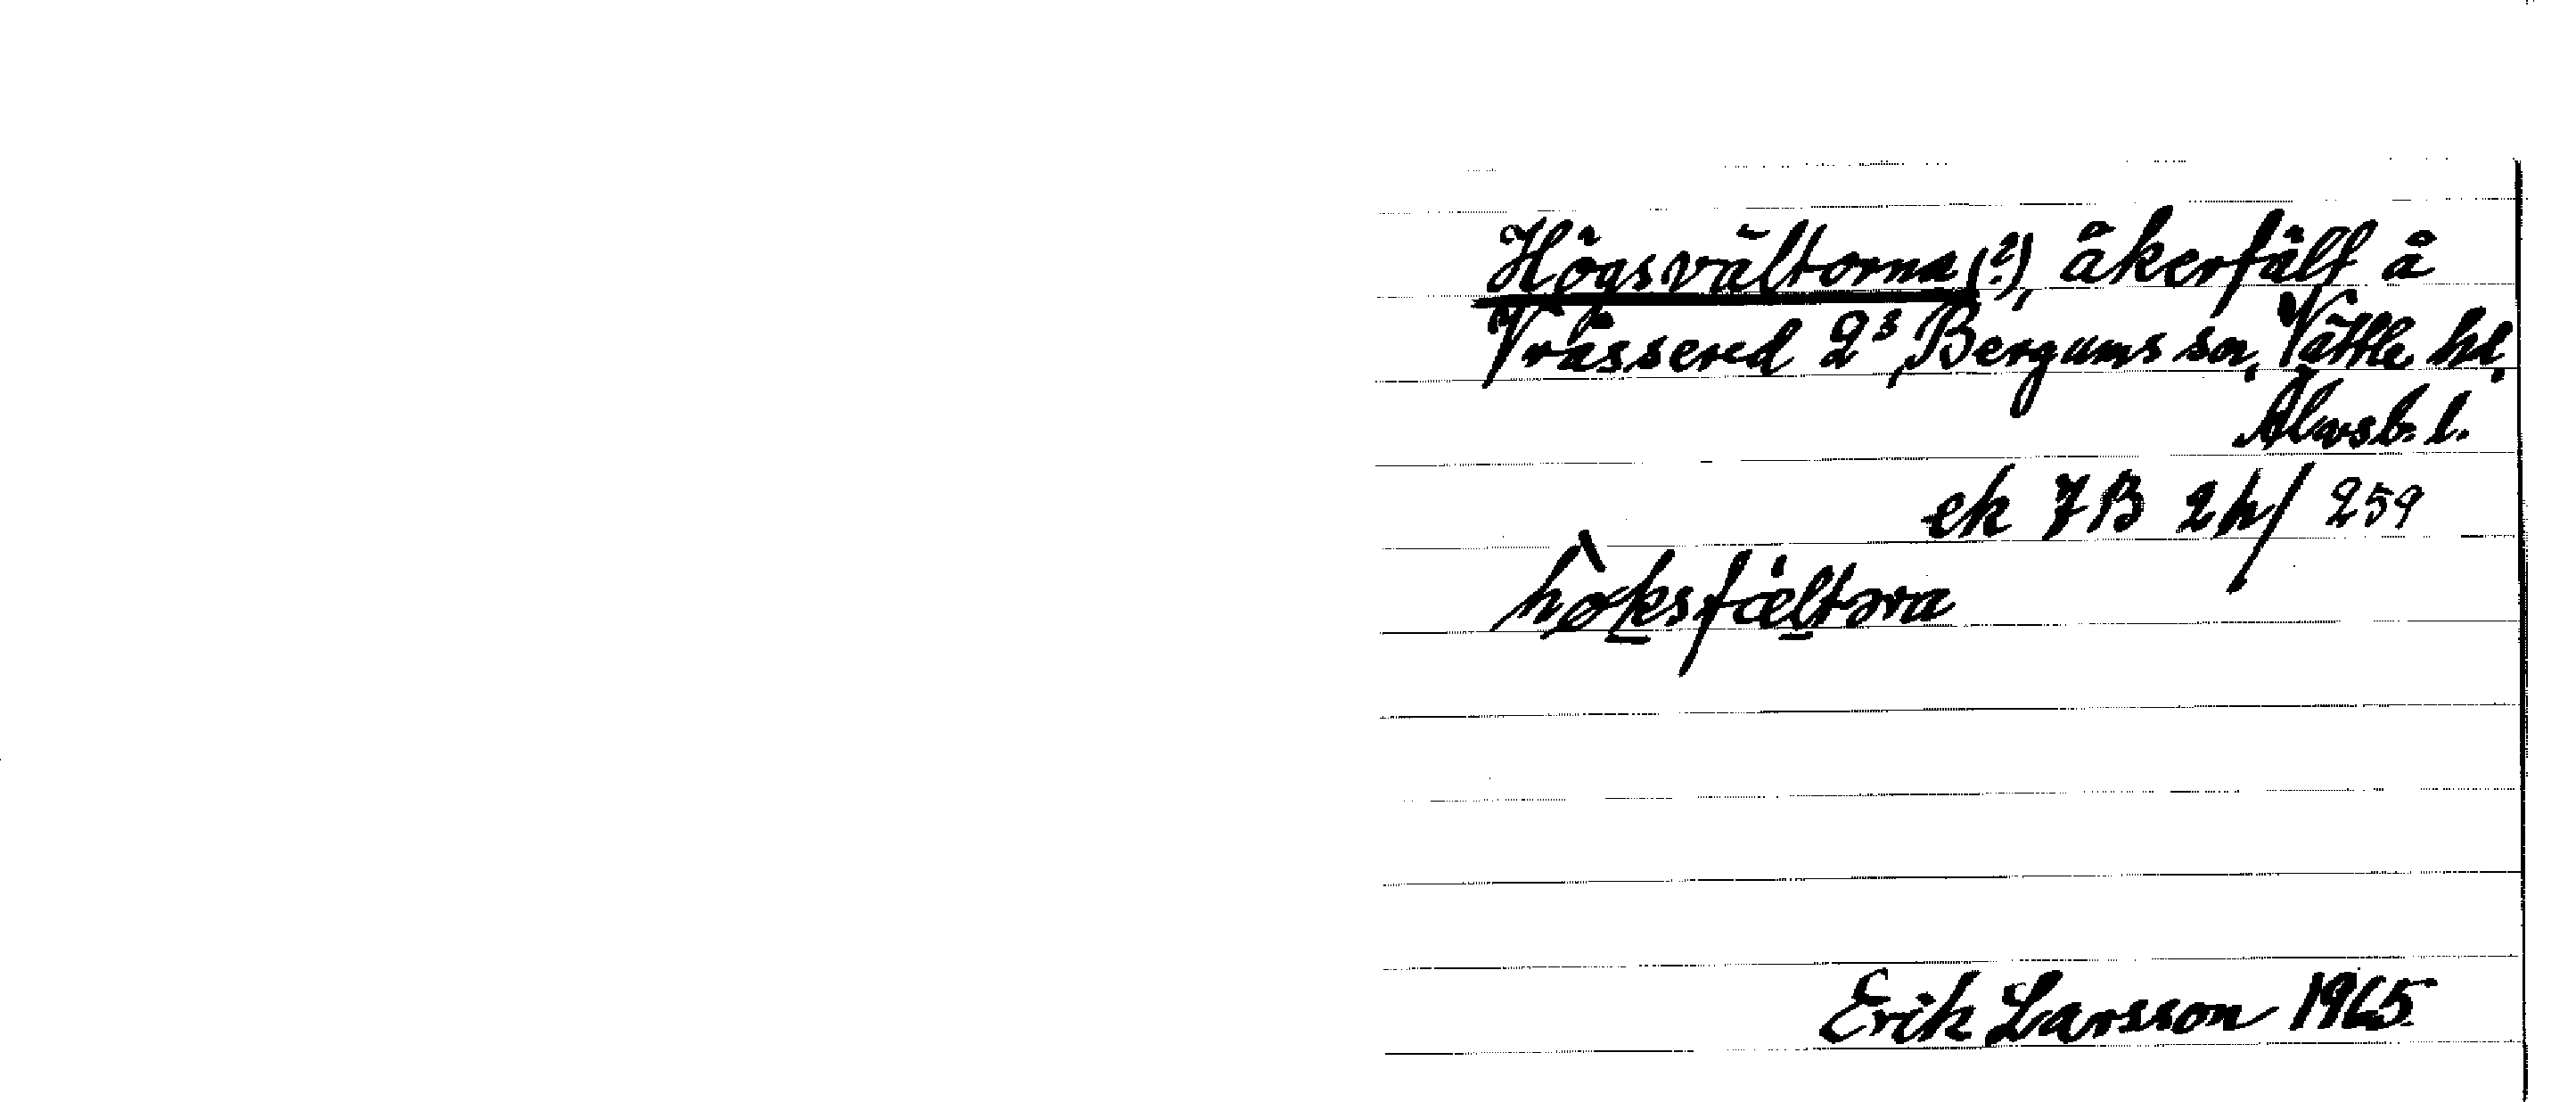 Högsvältorna (?), åkerfält å
Vrässered 2³, Bergums sn, Vättle hd,
Älvsb. l.
ek 7B 2h/259
hø̂ksfæ̀ltəra
Erik Larsson 1965